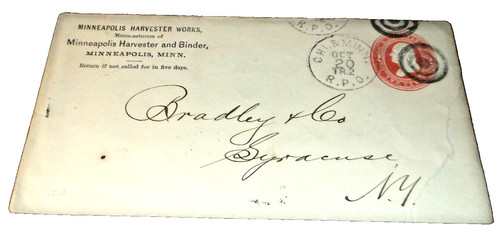 MINNEAPOLIS HARVESTER WORKS,
Manufacturers of
Minneapolis Harvester and Binder,
MINNEAPOLIS, MINN.
Return if not called for in five days.
R.P.O.
CHI. & MINN.
OCT
20
R.P.O.
Bradley & Co
Syracuse
N.Y.